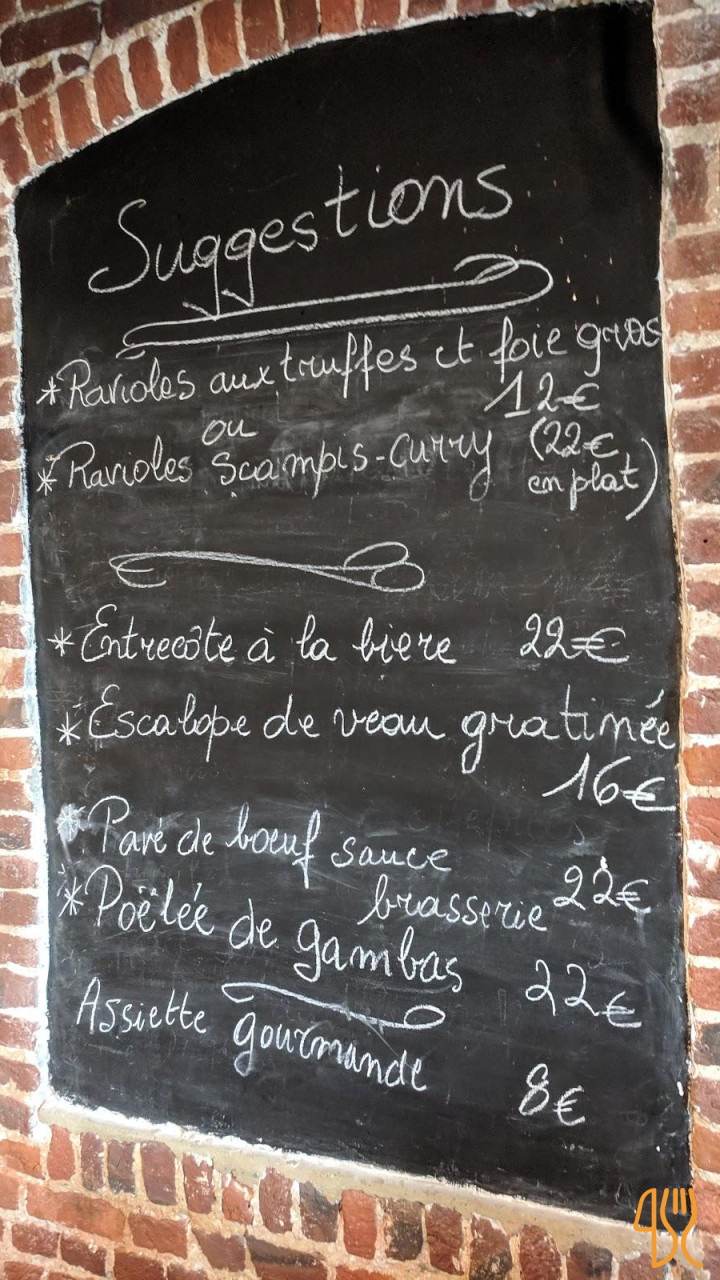 Suggestions
*Ravioles aux truffes et foie gras
12€
ou
*Ravioles Scampis-curry (22€
en plat)
*Entrecôte à la biere 22€
*Escalope de veau gratinée
16€
*Pavé de boeuf sauce
brasserie 22€
*Poëlée de gambas 22€
Assiette gourmande 8€